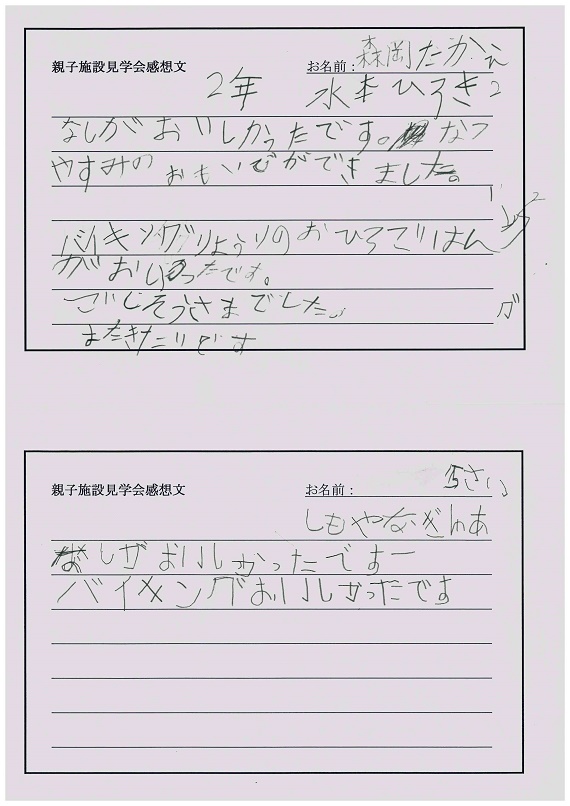 親子施設見学会感想文
お名前：森岡たかえ
2年 水本ひろき
なしがおいしかったです。なつ
やすみのおもいでができました。
バイキングりょうりのおひるごはん
がおいしかったです。
ごちそうさまでした。
またきたいです
親子施設見学会感想文
お名前： 5さい
しもやなぎ
なしがおいしかったですー
バイキングおいしかったです